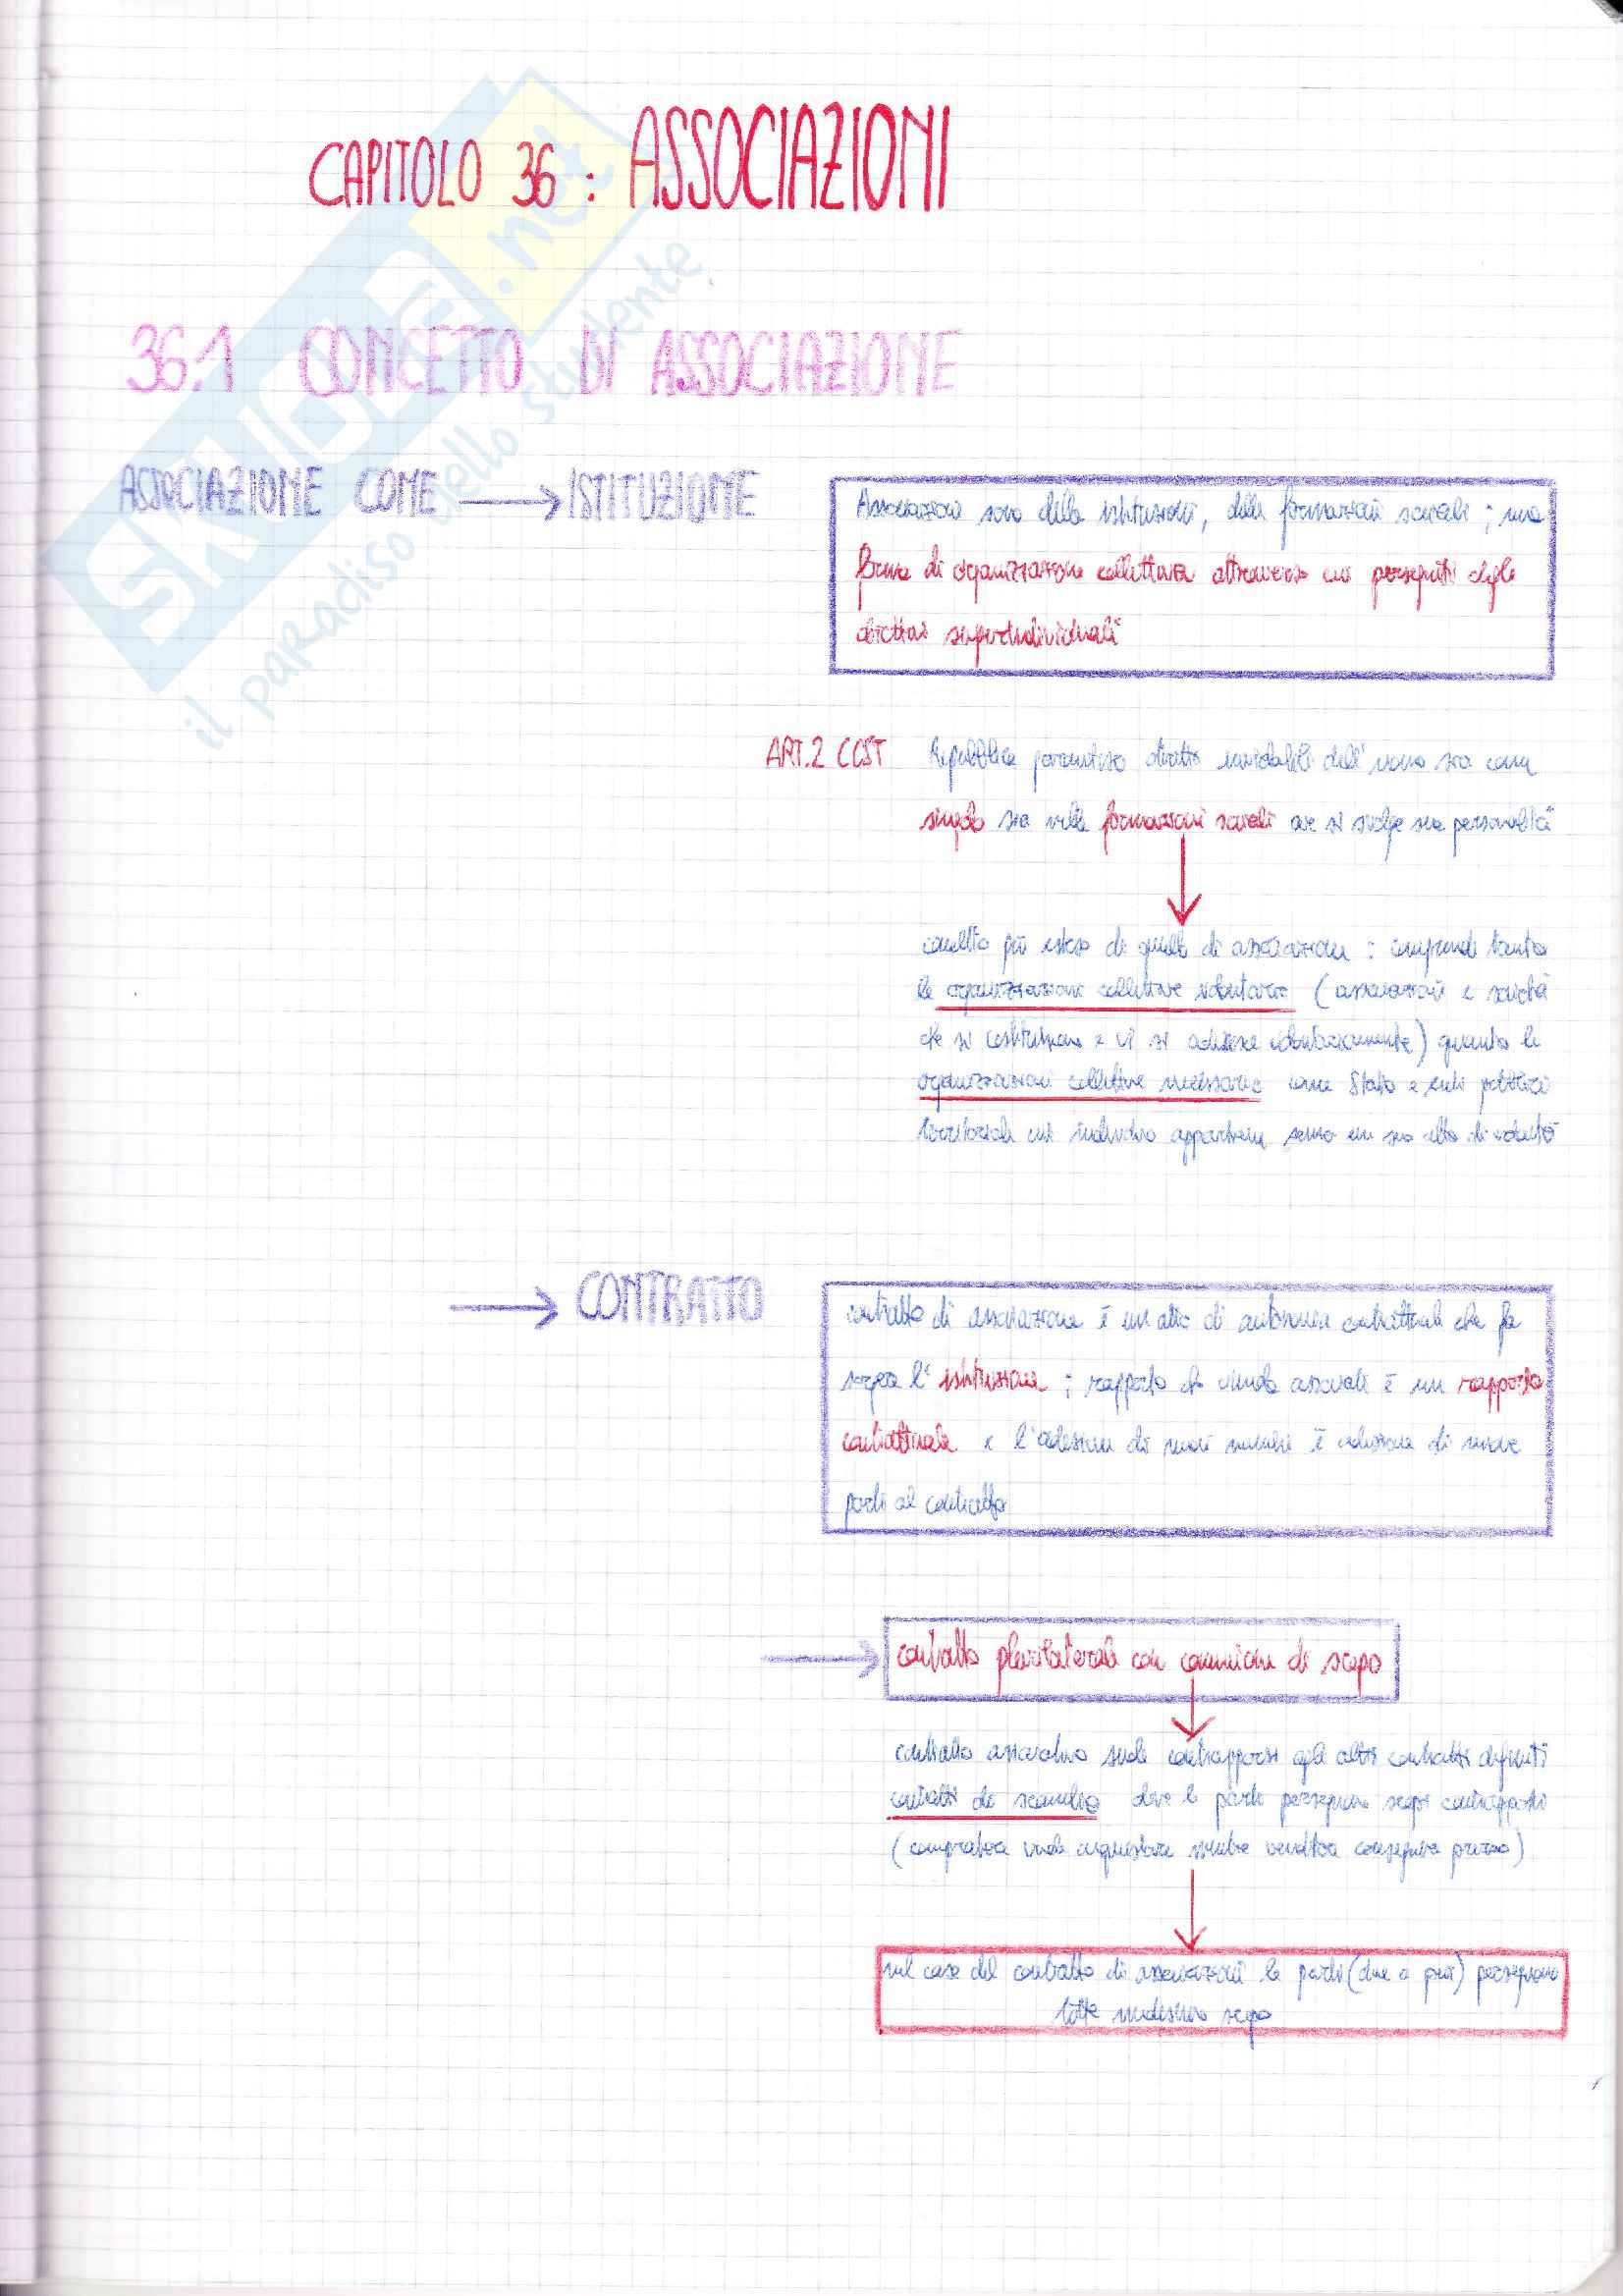 CAPITOLO 36 : ASSOCIAZIONI
36.1 CONCETTO DI ASSOCIAZIONE
ASSOCIAZIONE COME → ISTITUZIONE
Associazioni sono delle istituzioni, delle formazioni sociali ; una
forma di organizzazione collettiva attraverso cui perseguiti degli
obiettivi superindividuali
ART.2 COST Repubblica garantisce diritti inviolabili dell'uomo sia come
singolo sia nelle formazioni sociali ove si svolge sua personalità
concetto più esteso di quello di associazione : comprende tanto
le organizzazioni collettive volontarie (associazioni e società
che si costituiscono e vi si aderisce volontariamente) quanto le
organizzazioni collettive necessarie come Stato e enti pubblici
territoriali cui individuo appartiene senza un suo atto di volontà
→ CONTRATTO
contratto di associazione è un atto di autonomia contrattuale che fa
sorgere l'istituzione ; rapporto che vincola associati è un rapporto
contrattuale e l'adesione di nuovi membri è adesione di nuove
parti al contratto
→ contratto plurilaterale con comunione di scopo
contratto associativo suole contrapporsi agli altri contratti definiti
contratti di scambio dove le parti perseguono scopi contrapposti
(compratore vuole acquistare mentre venditore conseguire prezzo)
nel caso del contratto di associazione le parti (due o più) perseguono
tutte medesimo scopo
SKUOLA.net
il paradiso dello studente